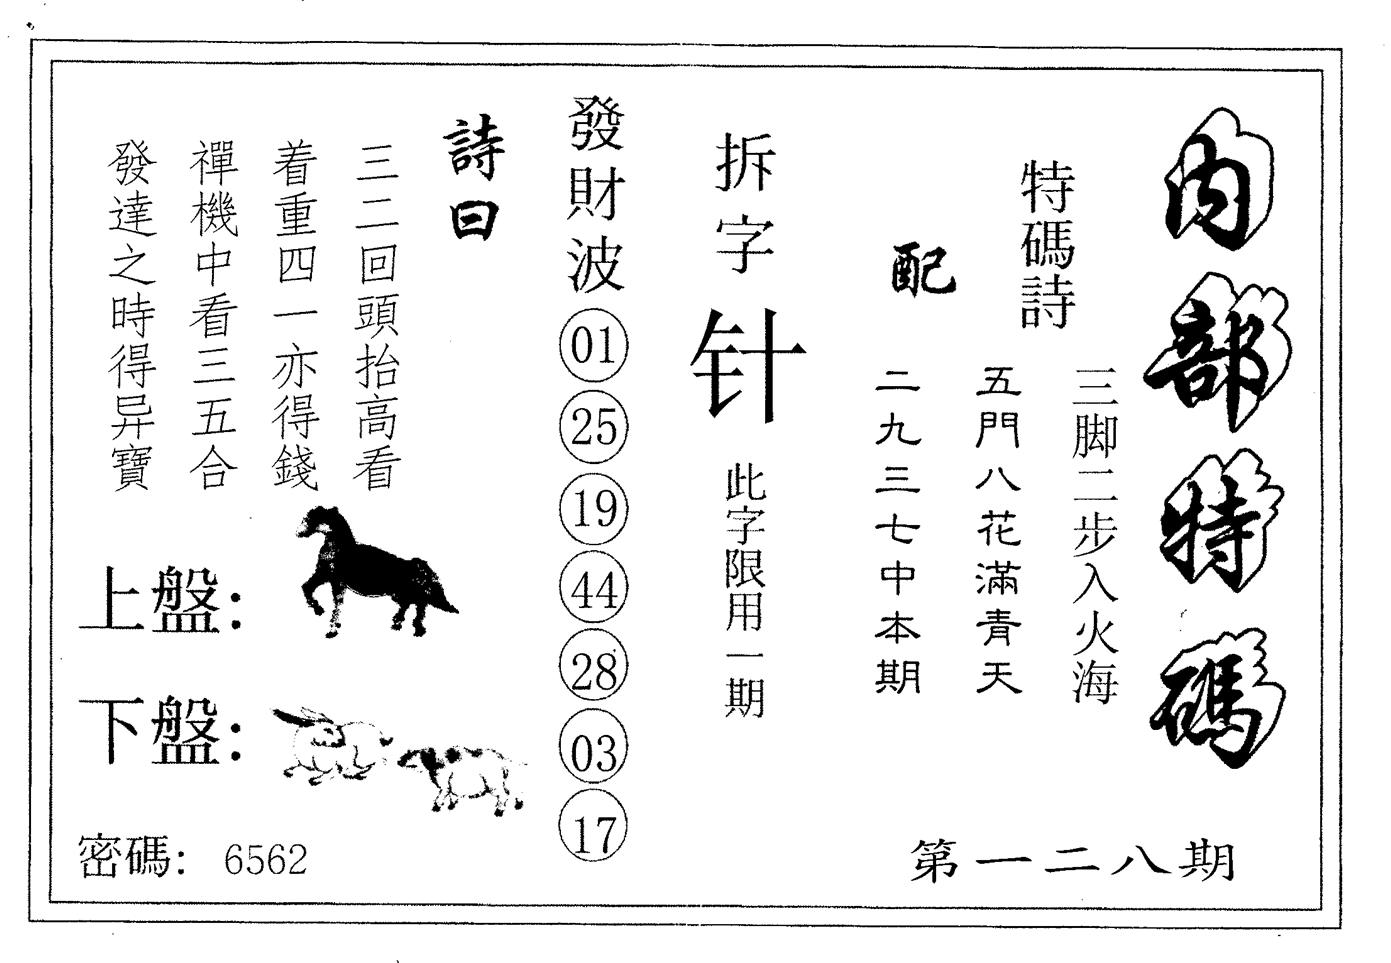 內部特碼
特碼詩
三脚二步入火海
五門八花滿青天
配
二九三七中本期
第一二八期
拆字
针
此字限用一期
發財波
01
25
19
44
28
03
17
詩曰
三二回頭抬高看
着重四一亦得錢
禪機中看三五合
發達之時得异寶
上盤：
下盤：
密碼：6562